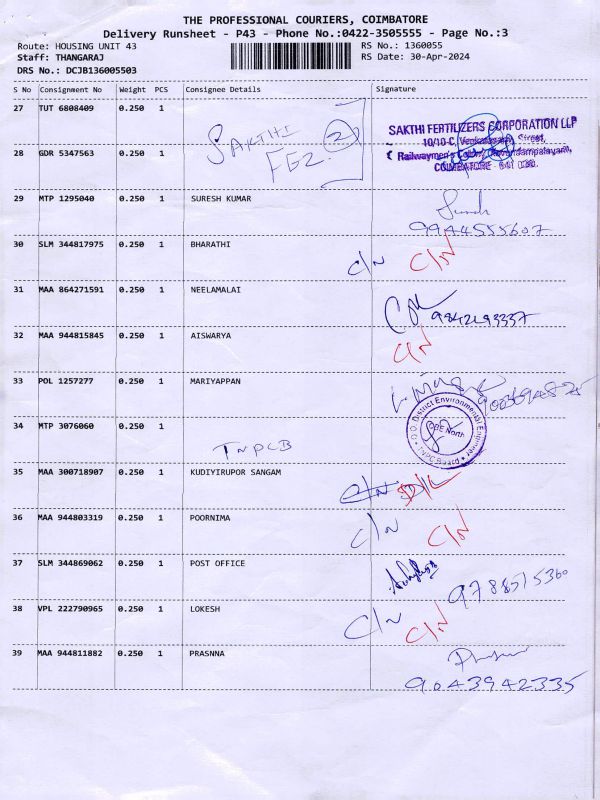 THE PROFESSIONAL COURIERS, COIMBATORE
Delivery Runsheet - P43 - Phone No.:0422-3505555 - Page No.:3
Route: HOUSING UNIT 43 RS No.: 1360055
Staff: THANGARAJ RS Date: 30-Apr-2024
DRS No.: DCJB136005503
S No Consignment No Weight PCS Consignee Details Signature
27 TUT 6808409 0.250 1
SAKTHI FEZ. 2
SAKTHI FERTILIZERS CORPORATION LLP
10/10-C, Venkatasamy Street,
28 GDR 5347563 0.250 1
COIMBATORE
29 MTP 1295040 0.250 1 SURESH KUMAR
9944555607
30 SLM 344817975 0.250 1 BHARATHI
C/N C/N
31 MAA 864271591 0.250 1 NEELAMALAI
9842193337
32 MAA 944815845 0.250 1 AISWARYA C/N
33 POL 1257277 0.250 1 MARIYAPPAN
34 MTP 3076060 0.250 1
TNPCB
O/O. District Environmental Engineer
TNPC Board
North
35 MAA 300718907 0.250 1 KUDIYIRUPOR SANGAM
C/N D/L
36 MAA 944803319 0.250 1 POORNIMA
C/N C/N
37 SLM 344869062 0.250 1 POST OFFICE
9788515360
38 VPL 222790965 0.250 1 LOKESH
C/N C/N
39 MAA 944811882 0.250 1 PRASNNA
9043942335